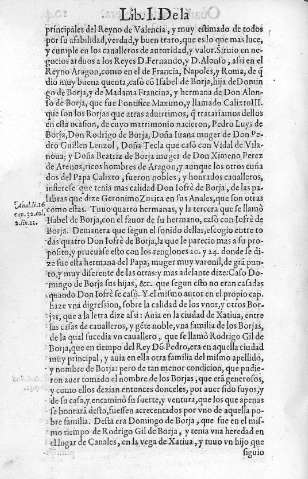 Lib. I. De la
principales del Reyno de Valencia, y muy estimado de todos
por su afabilidad, verdad, y buen trato, que es lo que mas luce,
y cumple en los caualleros de autoridad, y valor. Siruio en ne-
gocios arduos a los Reyes D. Fernando, y D. Alonso, assi en el
Reyno Aragon, como en el de Francia, Napoles, y Roma, de q̃
dio muy buena quenta, casò cõ Isabel de Borja, hija de Domin-
go de Borja, y de Madama Francina, y hermana de Don Alon-
so de Borja, que fue Pontifice Maximo, y llamado Calixto III.
que son los Borjas que atras diximos, q̃ tratariamos dellos
en esta ocasion, de cuyo matrimonio nacieron, Pedro Luys de
Borja, Don Rodrigo de Borja, Doña Iuana muger de Don Pe-
dro Guillen Lenzol, Doña Tecla que casò con Vidal de Vila-
noua; y Doña Beatriz de Borja muger de Don Ximeno Perez
de Arenos, ricos hombres de Aragon, y aunque los otros cuña-
dos del Papa Calixto, fueron nobles, y honrados caualleros,
infierese que tenia mas calidad Don Iofrè de Borja, de las pa-
labras que dize Geronimo Zurita en sus Anales, que son otras
como estas. Tuuo quatro hermanas, y la tercera que se llamò
Isabel de Borja, con el fauor de su hermano, casò con Iofrè de
Borja. De manera que segun el sonido dellas, escogio entre to
das quatro Don Iofrè de Borja, la que le parecio mas a su pro-
posito, y prueuase esto con los renglones 20. y 24. donde se di-
ze fue esta hermana del Papa, muger muy varonil, de grã pun-
to, y muy diferente de las otras y mas adelante dize: Caso Do-
mingo de Borja sus hijas, &c. que segun esto no eran casadas
quando Don Iofrè casò. Y el mismo autor en el proprio cap.
haze vna digression, sobre la calidad de los vnos, y otros Bor-
jas, que a la letra dize assi: Auia en la ciudad de Xatiua, entre
las casas de caualleros, y gẽte noble, vna familia de los Borjas,
de la qual sucedia vn cauallero, que se llamò Rodrigo Gil de
Borja, que en tiempo del Rey Dõ Pedro, era en aquella ciudad
muy principal, y auia en ella otra familia del mismo apellido,
y nombre de Borja: pero de tan menor condicion, que pudie-
ron auer tomado el nombre de los Borjas, que erã generosos,
y como ellos dezian entonces donceles, por auer sido suyos, y
de su casa, y encaminò su suerte, y ventura, que los que apenas
se honarà desto, fuessen acrecentados por vno de aquella po-
bre familia. Desta era Domingo de Borja, que fue en el mis-
mo tiempo de Rodrigo Gil de Borja, y tenia vna heredad en
el lugar de Canales, en la vega de Xatiua, y tuuo vn hijo que
siguio